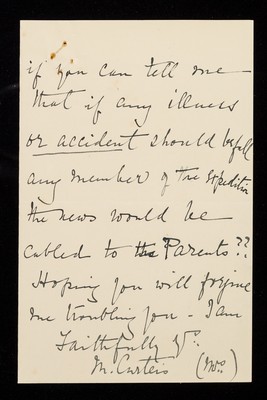 if you can tell me —
that if any illness
or accident should befall
any member of the Expedition
the news would be
cabled to the Parents??
Hoping you will forgive
me troubling you – I am
Faithfully Yrs.
M. Curteis (Mrs)